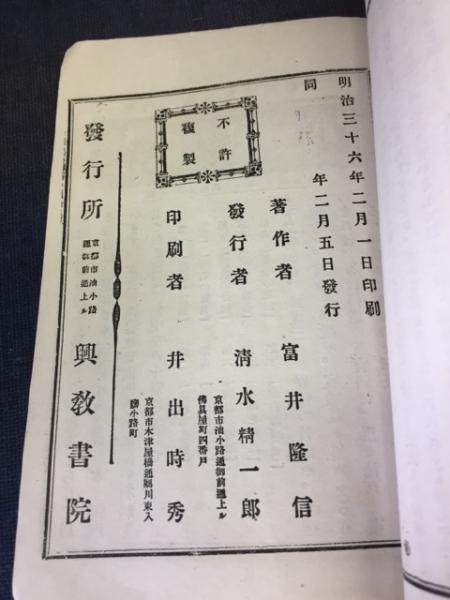 明治三十六年二月一日印刷
同年二月五日發行
不許
複製
著作者 富井隆信
發行者 清水精一郎
京都市油小路通御前通上ル
佛具屋町四番戸
印刷者 井出時秀
京都市木津屋橋通堀川東入
御小路町
發行所
京都市油小路
通御前通上ル
興教書院